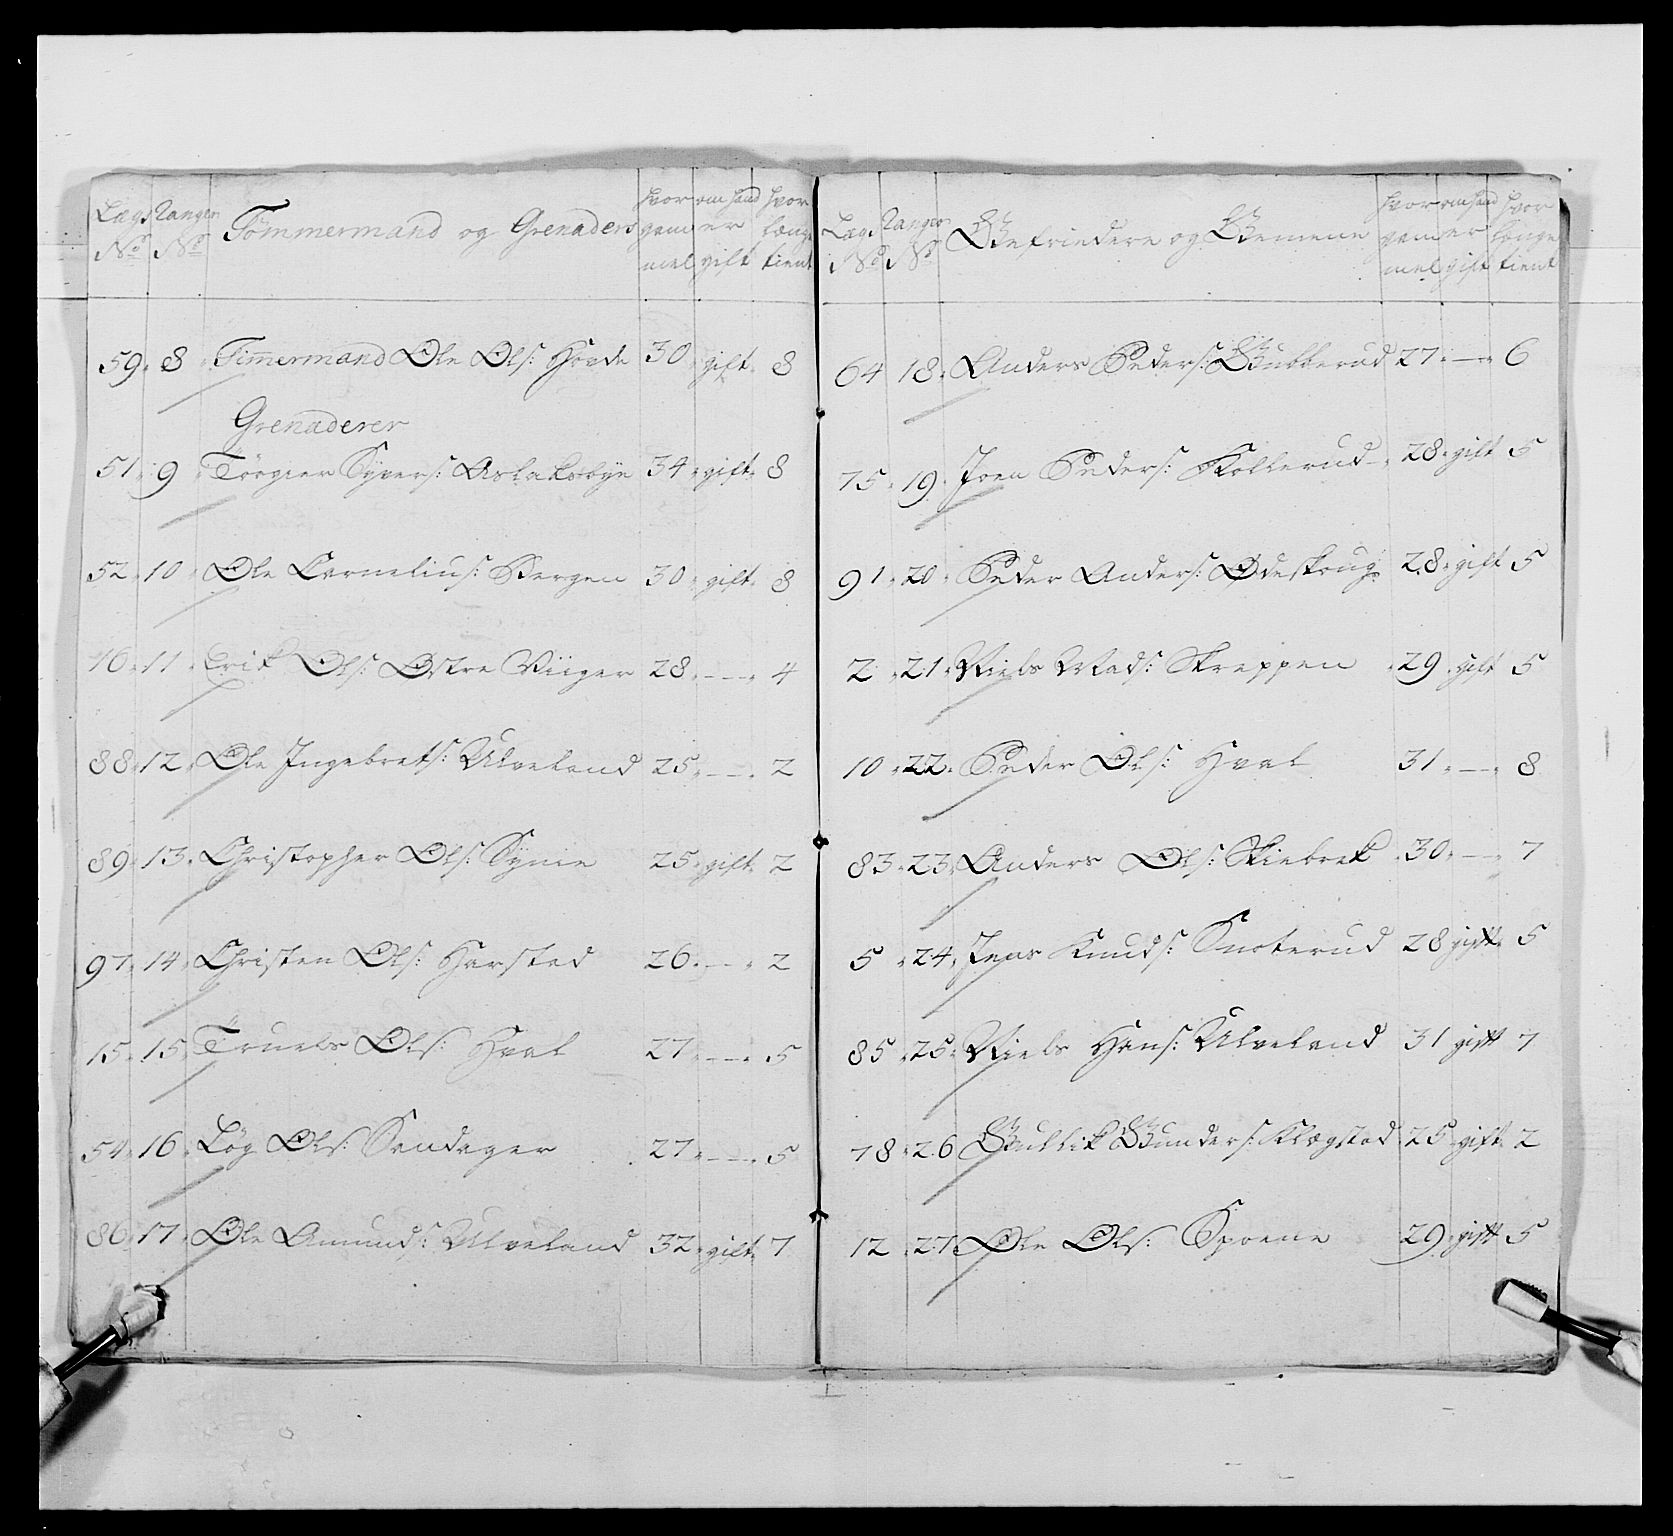 Lægs No Ranger No Tömmermand og Grenaders hvor gammel om hand er gift hvor længe tient
59 8 Timmermand Ole Ols: Hovde 30 gift 8
Grenaderer
51 9 Törgier Syvers: Aslaksbye 34 gift 8
52 10 Ole Cornelius: Bergen 30 gift 8
76 11 Erik Ols: Østre Viiger 28 — 4
88 12 Ole Ingebrets: Ulveland 25 — 2
89 13 Christopher Ols: Synie 25 gift 2
97 14 Christen Ols: Harsted 26 — 2
15 15 Truels Ols: Hval 27 — 5
54 16 Låg Ols: Sandager 27 — 5
86 17 Ole Amunds: Ulveland 32 gift 7
Lægs No Ranger No Gefriedere og Gemene hvor gammel om hand er gift hvor længe tient
64 18 Anders Peders: Gubberud 27 — 6
75 19 Joen Peders: Kollerud 28 gift 5
91 20 Peder Anders: Ødeskoug 28 gift 5
2 21 Niels Mads: Skreppen 29 gift 5
10 22 Peder Ols: Hval 31 — 8
83 23 Anders Ols: Skiebrek 30 — 7
5 24 Jens Knuds: Snoterud 28 gift 5
85 25 Niels Hans: Ulveland 31 gift 7
78 26 Gullik Gunders: Klægstad 25 gift 2
12 27 Ole Ols: Spoene 29 gift 5